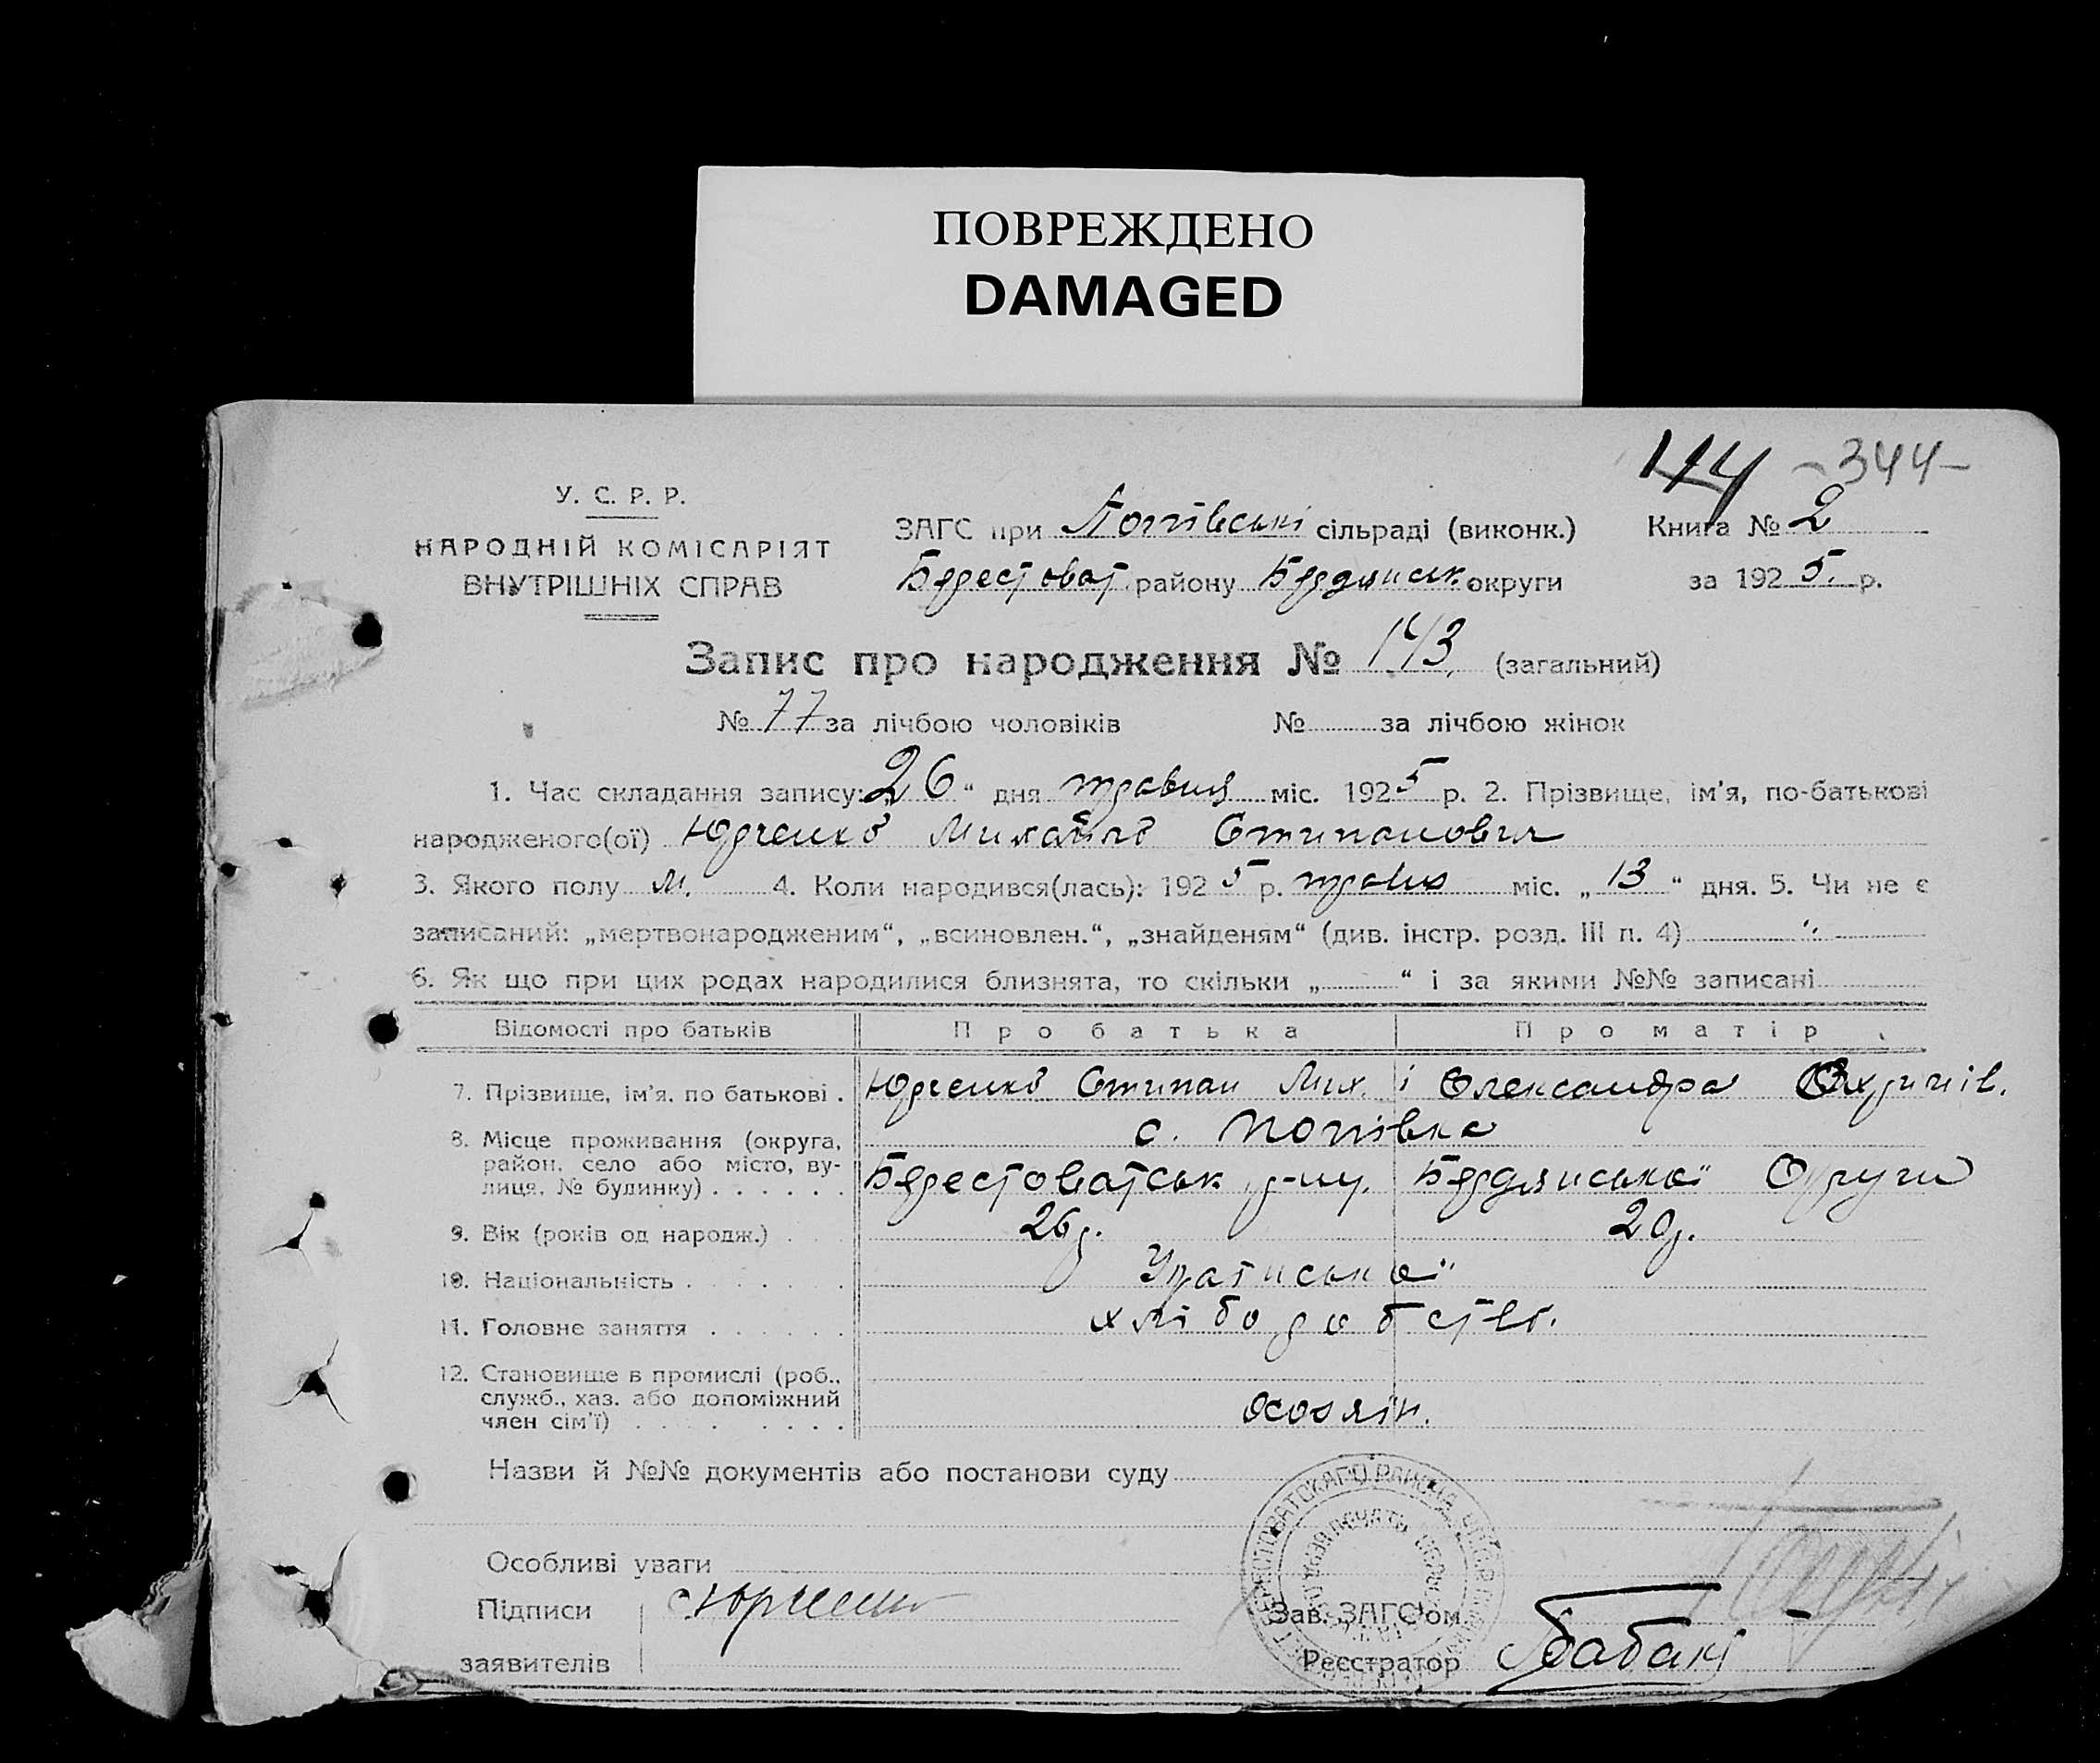 ПОВРЕЖДЕНО
DAMAGED
114 -344-
У. С. Р. Р.
НАРОДНІЙ КОМІСАРІЯТ
ВНУТРІШНІХ СПРАВ
ЗАГС при Попівські сільраді (виконк.) Книга № 2
Берестоват району Бердянськ. округи за 1925. р.
Запис про народження № 143 (загальний)
№ 77 за лічбою чоловіків № за лічбою жінок
1. Час складання запису: 26 “ дня травня міс. 1925 р. 2. Прізвище, ім'я, по-батькові
народженого(ої) Юрченко Михайло Стипанович
3. Якого полу м. 4. Коли народився(лась): 1925 р. травня міс. „ 13 “ дня. 5. Чи не є
записаний: „мертвонародженим“, „всиновлен.“, „знайденям“ (див. інстр. розд. III п. 4)
6. Як що при цих родах народилися близнята, то скільки „ “ і за якими №№ записані
Відомості про батьків Про батька Про матір
7. Прізвище, ім'я. по батькові . Юрченко Стипан Мих. і Олександра
8. Місце проживання (округа, район, село або місто, вулиця, № будинку) . . . . . . с. Попівка
Берестоватськ р-ну. Бердянської Округи
9. Вік (років од народж.) . . . 26 р. 20 р.
10. Національність . . . . .
11. Головне заняття . . . . . . хліборобств.
12. Становище в промислі (роб.,
служб., хаз. або допоміжний
член сім'ї) . . . . . . .
Назви й №№ документів або постанови суду
Особливі уваги
Підписи Юрченко
заявителів
Зав. ЗАГС'ом
Реєстратор